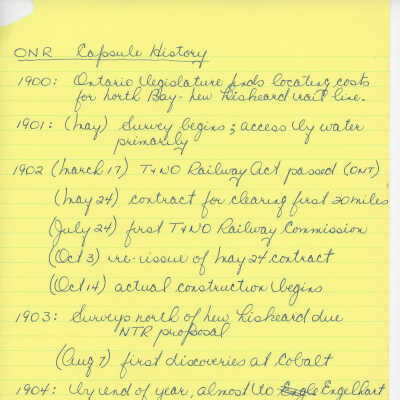 ONR Capsule History
1900: Ontario Legislature funds locating costs
for North Bay - New Liskeard rail line.
1901: (May) Survey begins; access by water
primarily
1902 (March 17) T+NO Railway Act passed (ONT)
(May 24) contract for clearing first 20 miles
(July 24) first T+NO Railway Commission
(Oct 3) re-issue of May 24 contract
(Oct 14) actual construction begins
1903: Surveys north of New Liskeard due
NTR proposal
(Aug 7) first discoveries at Cobalt
1904: by end of year, almost to Engle Englehart